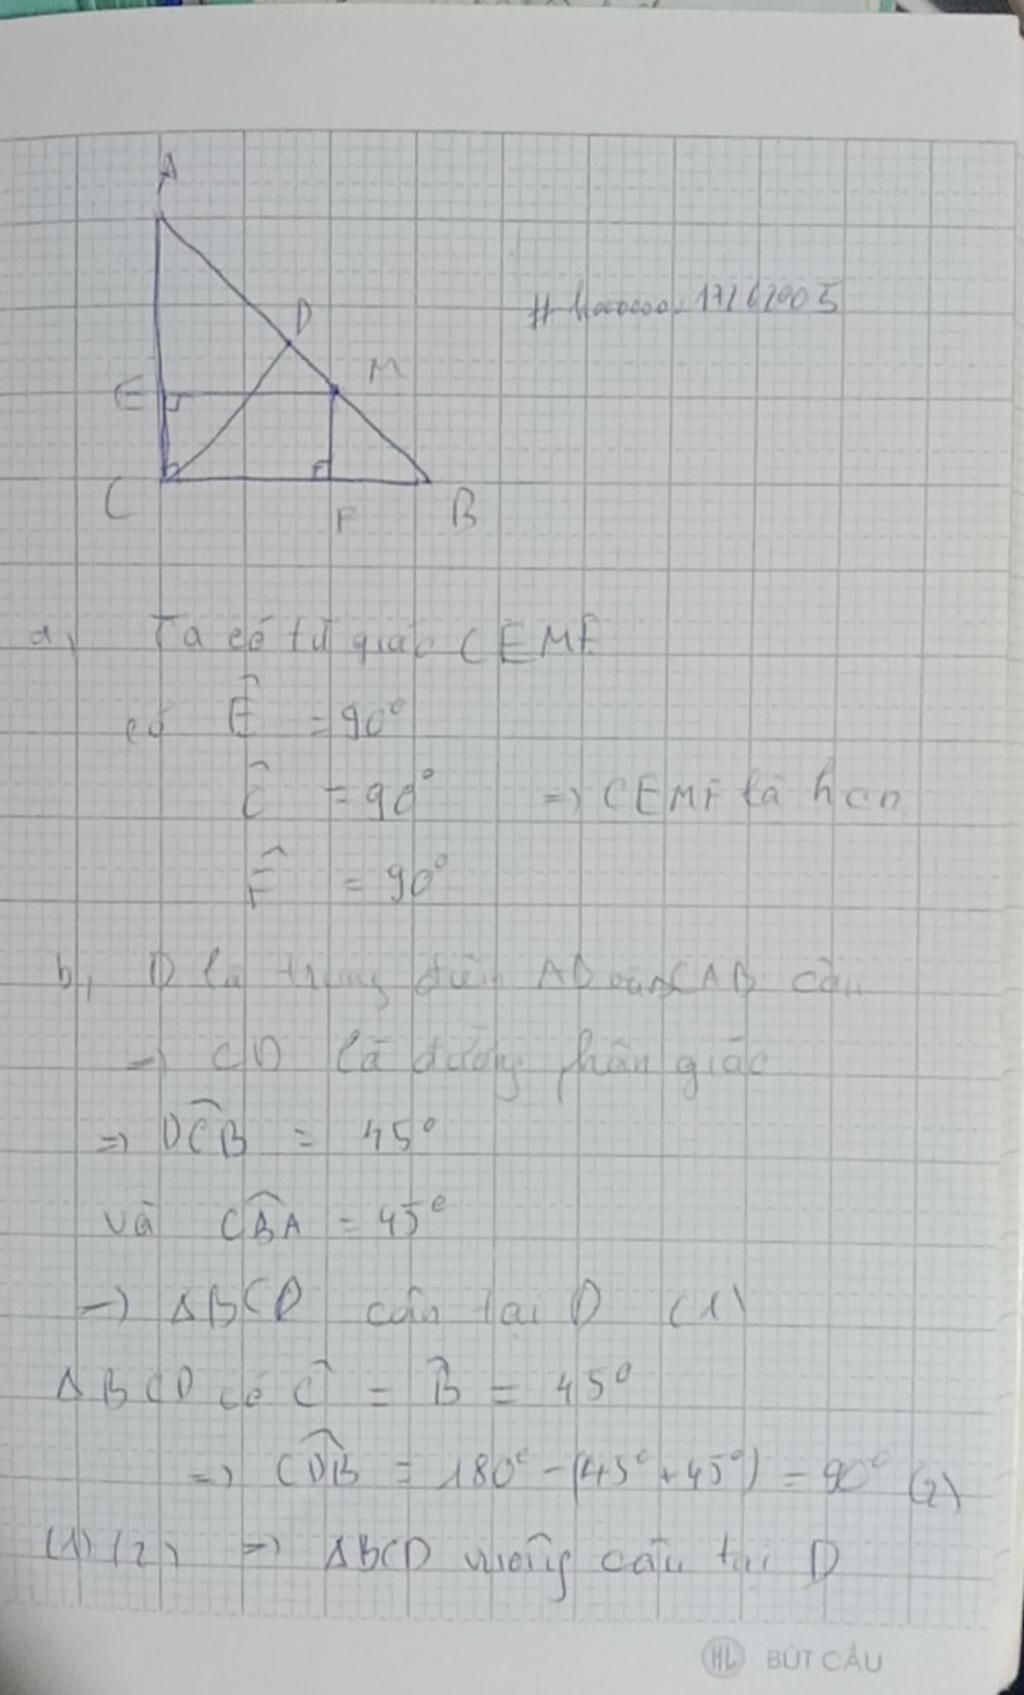 A
D
# 17/6/2005
M
E
C
F
B
a, Ta có tứ giác CEMF
có Ê = 90°
Ĉ = 90° => CEMF là hcn
F̂ = 90°
b, D là trung điểm AB CAB cân
=> CD là đường phân giác
=> DĈB = 45°
và CB̂A = 45°
=> ΔBCD cân tại D (1)
ΔBCD có Ĉ = B̂ = 45°
=> CD̂B = 180° - (45° + 45°) = 90° (2)
(1) (2) => ΔBCD vuông cân tại D
HL BÚT CÂU